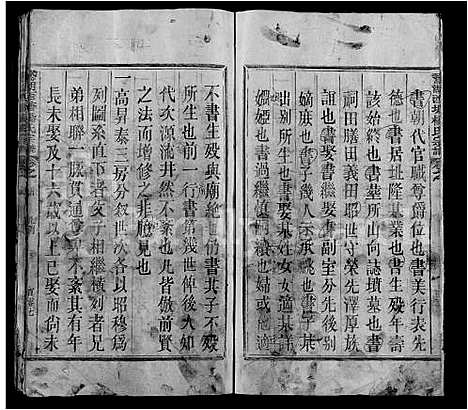 書朝代官職尊爵位也書美行表先
德也書居址隆基業也書生殁年壽
該始終也書墓所山向誌墳墓也書
祠田膳田義田昭世守榮先澤厚族
誼也書娶書繼娶書副室分先後別
嫡庶也書子幾人示承祧也書子某
出別所生也書娶某姓女女適某詳
婣婭也書過繼慎同也書婦或他適
不書生殁與廟絶也仍書其子不殁
所生也前一行書第幾世俾後人如
代次源流井然不紊也凡此皆倣前賢
之法而增修之非臆見也
一高昇泰三房分敘世次各以昭穆爲
列圖系直下者父子相繼橫列者兄
弟相聯一脉貫通尊卑不紊其有年
長未娶及十六歲以上已娶而尚未